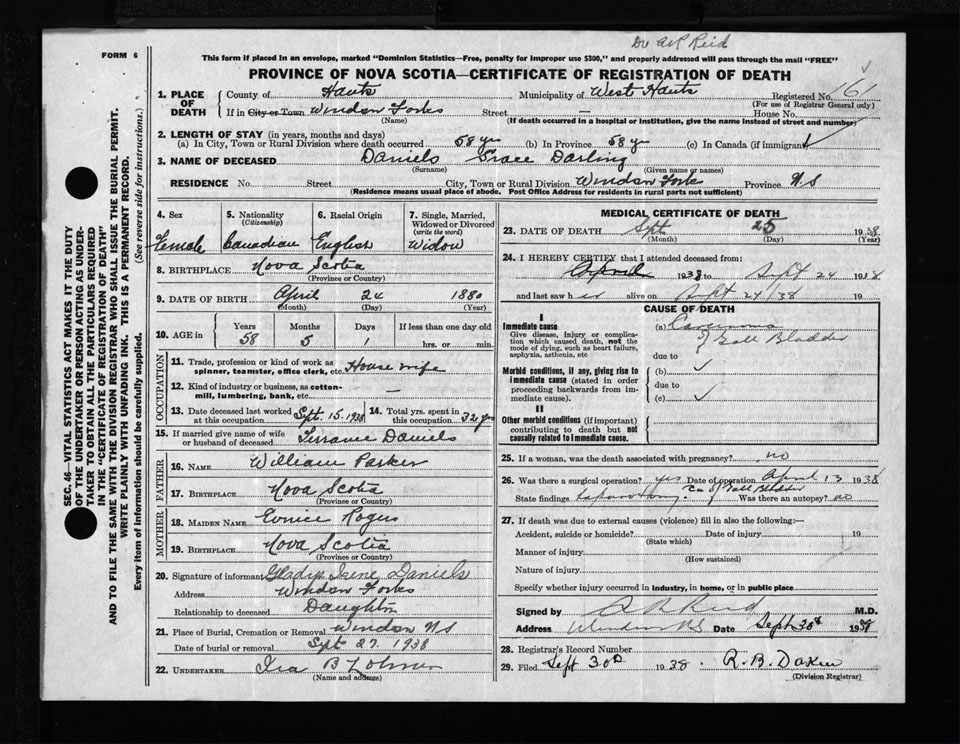 Dr A R Reid
FORM 6
This form if placed in an envelope, marked "Dominion Statistics—Free, penalty for improper use $300," and properly addressed will pass through the mail "FREE"
PROVINCE OF NOVA SCOTIA—CERTIFICATE OF REGISTRATION OF DEATH
1. PLACE OF DEATH
County of Hants Municipality of West Hants Registered No. 61
(For use of Registrar General only)
If in City or Town Windsor Forks Street — House No.
(Name) (If death occurred in a hospital or institution, give the name instead of street and number)
2. LENGTH OF STAY (in years, months and days)
(a) In City, Town or Rural Division where death occurred 58 yrs (b) In Province 58 yr (c) In Canada (if immigrant)
3. NAME OF DECEASED Daniels Grace Darling
(Surname) (Given name or names)
RESIDENCE No. Street City, Town or Rural Division Windsor Forks Province NS
(Residence means usual place of abode. Post Office Address for residents in rural parts not sufficient)
4. Sex Female
5. Nationality (Citizenship) Canadian
6. Racial Origin English
7. Single, Married, Widowed or Divorced (write the word) Widow
8. BIRTHPLACE Nova Scotia
(Province or Country)
9. DATE OF BIRTH April 24 1880
(Month) (Day) (Year)
10. AGE in Years 58 Months 5 Days 1 If less than one day old hrs. or min.
OCCUPATION
11. Trade, profession or kind of work as spinner, teamster, office clerk, etc. House wife
12. Kind of industry or business, as cotton-mill, lumbering, bank, etc. —
13. Date deceased last worked at this occupation Sept. 15. 1938
14. Total yrs. spent in this occupation 32 yrs
15. If married give name of wife or husband of deceased Daniels
FATHER
16. NAME William Parker
17. BIRTHPLACE Nova Scotia
(Province or Country)
MOTHER
18. MAIDEN NAME Eunice Rogers
19. BIRTHPLACE Nova Scotia
(Province or Country)
20. Signature of informant Gladys Irene Daniels
Address Windsor Forks
Relationship to deceased Daughter
21. Place of Burial, Cremation or Removal Windsor NS
Date of burial or removal Sept 27. 1938
22. UNDERTAKER Ira B
(Name and address)
MEDICAL CERTIFICATE OF DEATH
23. DATE OF DEATH Sept 25 1938
(Month) (Day) (Year)
24. I HEREBY CERTIFY that I attended deceased from:
April 1938 to Sept 24 1938
and last saw her alive on Sept 24/38 19
CAUSE OF DEATH
I
Immediate cause
Give disease, injury or complication which caused death, not the mode of dying, such as heart failure, asphyxia, asthenia, etc
(a) Carcinoma of Gall Bladder
due to
Morbid conditions, if any, giving rise to immediate cause (stated in order proceeding backwards from immediate cause).
(b)
due to
(c)
II
Other morbid conditions (if important) contributing to death but not causally related to immediate cause.
25. If a woman, was the death associated with pregnancy? no
26. Was there a surgical operation? yes Date of operation April 13 1938
State findings Laparotomy. Ca of Gall Bladder Was there an autopsy? no
27. If death was due to external causes (violence) fill in also the following:—
Accident, suicide or homicide? Date of injury 19
(State which)
Manner of injury
(How sustained)
Nature of injury
Specify whether injury occurred in industry, in home, or in public place
Signed by A R Reid M.D.
Address Windsor N.S Date Sept 30 1938
28. Registrar's Record Number
29. Filed Sept 30 1938. R. B. Dakin
(Division Registrar)
SEC. 46—VITAL STATISTICS ACT MAKES IT THE DUTY OF THE UNDERTAKER OR PERSON ACTING AS UNDERTAKER TO OBTAIN ALL THE PARTICULARS REQUIRED IN THE "CERTIFICATE OF REGISTRATION OF DEATH" AND TO FILE THE SAME WITH THE DIVISION REGISTRAR WHO SHALL ISSUE THE BURIAL PERMIT.
WRITE PLAINLY WITH UNFADING INK. THIS IS A PERMANENT RECORD.
Every item of information should be carefully supplied. (See reverse side for instructions.)